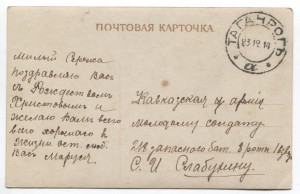 ПОЧТОВАЯ КАРТОЧКА
ТАГАНРОГЪ
23 12 14
а
Милый Сережа
поздравляю Васъ
съ Рождествомъ
Христовымъ и
желаю Вамъ всего
всего хорошаго в
жизни ост.
Васъ Маруся
Кавказская армія
молодому солдату
218 запасного бат. 3 роты
С. И.